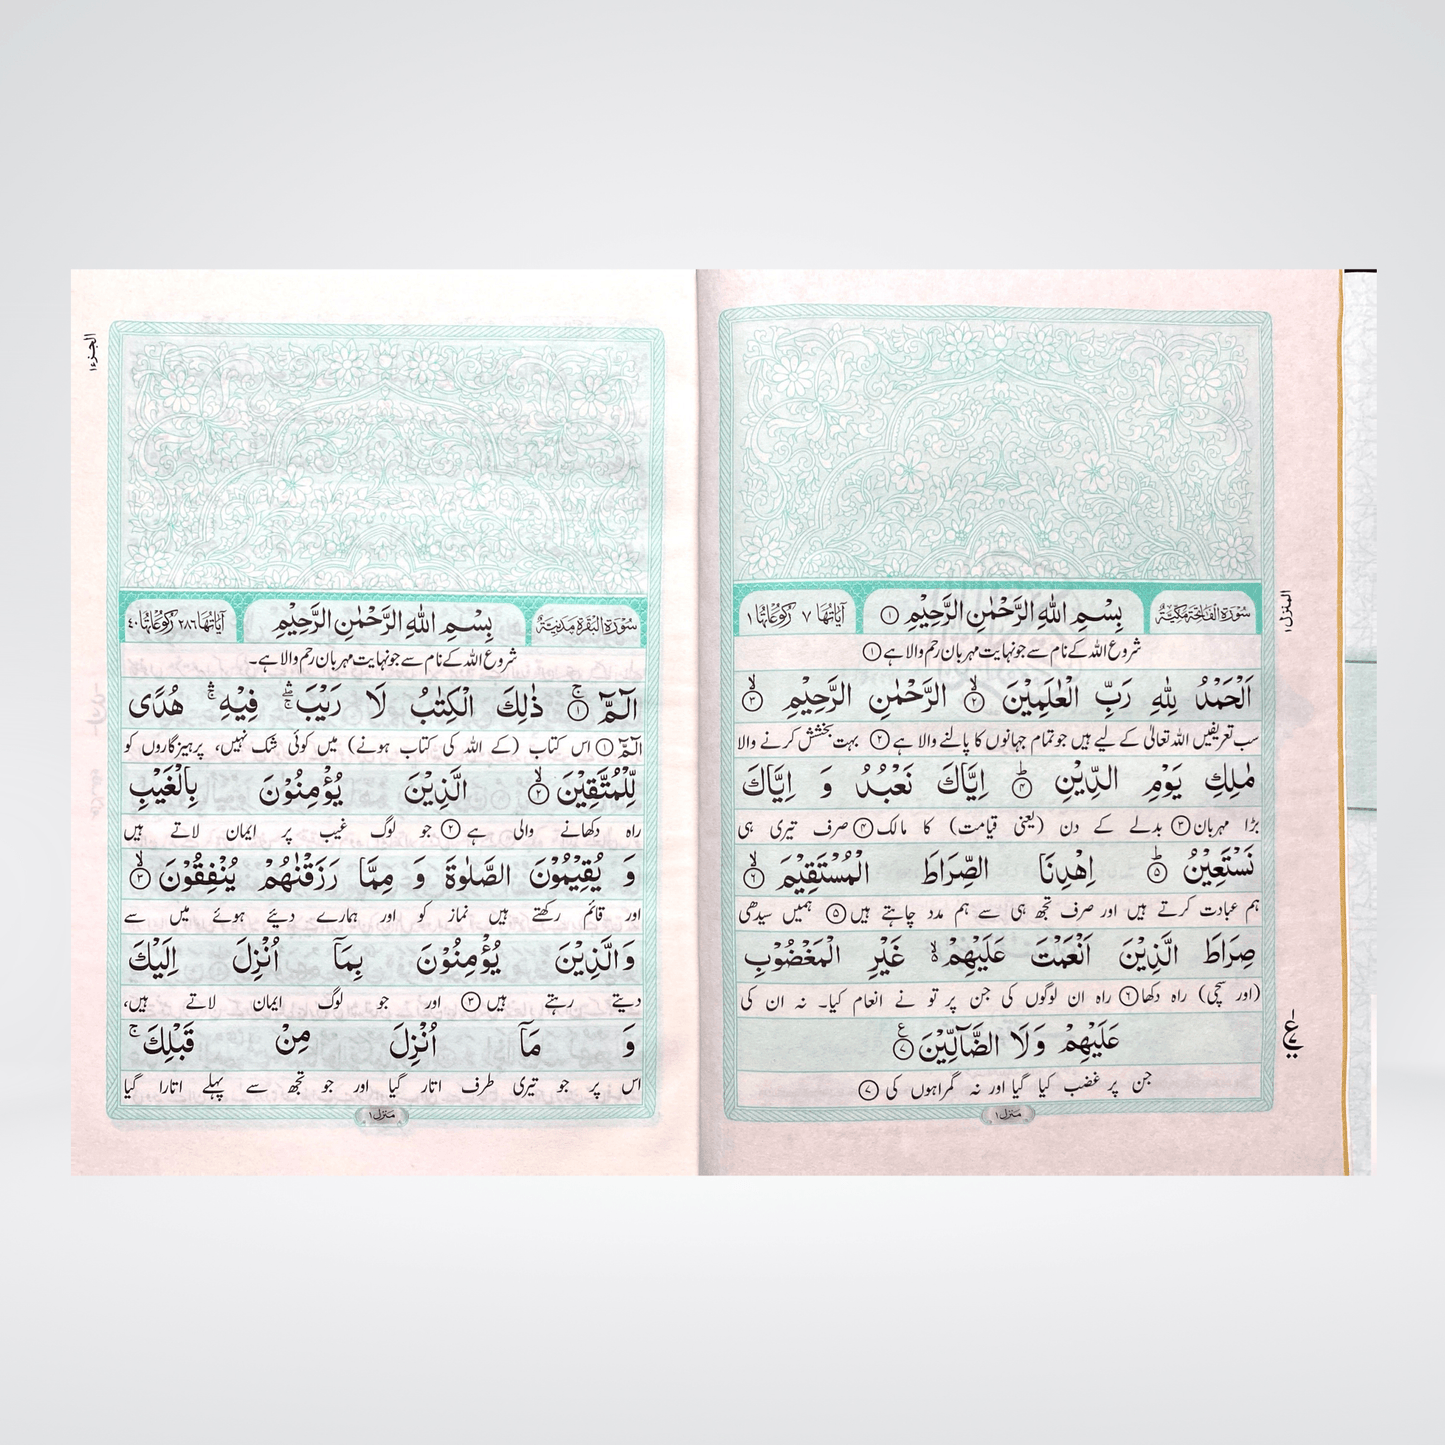 سُوْرَةُ الْفَاتِحَةِ مَكِّيَّةٌ
بِسْمِ اللّٰهِ الرَّحْمٰنِ الرَّحِيْمِ ①
اٰيَاتُهَا ٧ رُكُوْعَاتُهَا ١
شروع اللہ کے نام سے جو نہایت مہربان رحم والا ہے ①
اَلْحَمْدُ لِلّٰهِ رَبِّ الْعٰلَمِيْنَ ۙ② الرَّحْمٰنِ الرَّحِيْمِ ۙ③
سب تعریفیں اللہ تعالیٰ کے لیے ہیں جو تمام جہانوں کا پالنے والا ہے ② بہت بخشش کرنے والا
مٰلِكِ يَوْمِ الدِّيْنِ ؕ④ اِيَّاكَ نَعْبُدُ وَ اِيَّاكَ
بڑا مہربان ③ بدلے کے دن (یعنی قیامت) کا مالک ④ صرف تیری ہی
نَسْتَعِيْنُ ؕ⑤ اِهْدِنَا الصِّرَاطَ الْمُسْتَقِيْمَ ۙ⑥
ہم عبادت کرتے ہیں اور صرف تجھ ہی سے ہم مدد چاہتے ہیں ⑤ ہمیں سیدھی
صِرَاطَ الَّذِيْنَ اَنْعَمْتَ عَلَيْهِمْ ۙ۬ غَيْرِ الْمَغْضُوْبِ
(اور سچی) راہ دکھا ⑥ راہ ان لوگوں کی جن پر تو نے انعام کیا۔ نہ ان کی
عَلَيْهِمْ وَلَا الضَّآلِّيْنَ ⑦ ع
جن پر غضب کیا گیا اور نہ گمراہوں کی ⑦
منزل ١
المنزل ١
الجزء ١
سُوْرَةُ الْبَقَرَةِ مَدَنِيَّةٌ
بِسْمِ اللّٰهِ الرَّحْمٰنِ الرَّحِيْمِ
اٰيَاتُهَا ٢٨٦ رُكُوْعَاتُهَا ٤٠
شروع اللہ کے نام سے جو نہایت مہربان رحم والا ہے۔
الٓمّٓ ۚ① ذٰلِكَ الْكِتٰبُ لَا رَيْبَ ۛۚ فِيْهِ ۛۚ هُدًى
الٓمّٓ ① اس کتاب (کے اللہ کی کتاب ہونے) میں کوئی شک نہیں، پرہیزگاروں کو
لِّلْمُتَّقِيْنَ ۙ② الَّذِيْنَ يُؤْمِنُوْنَ بِالْغَيْبِ
راہ دکھانے والی ہے ② جو لوگ غیب پر ایمان لاتے ہیں
وَ يُقِيْمُوْنَ الصَّلٰوةَ وَ مِمَّا رَزَقْنٰهُمْ يُنْفِقُوْنَ ۙ③
اور قائم رکھتے ہیں نماز کو اور ہمارے دیئے ہوئے میں سے
وَالَّذِيْنَ يُؤْمِنُوْنَ بِمَاۤ اُنْزِلَ اِلَيْكَ
دیتے رہتے ہیں ③ اور جو لوگ ایمان لاتے ہیں،
وَ مَاۤ اُنْزِلَ مِنْ قَبْلِكَ ۚ
اس پر جو تیری طرف اتار گیا اور جو تجھ سے پہلے اتارا گیا
منزل ١